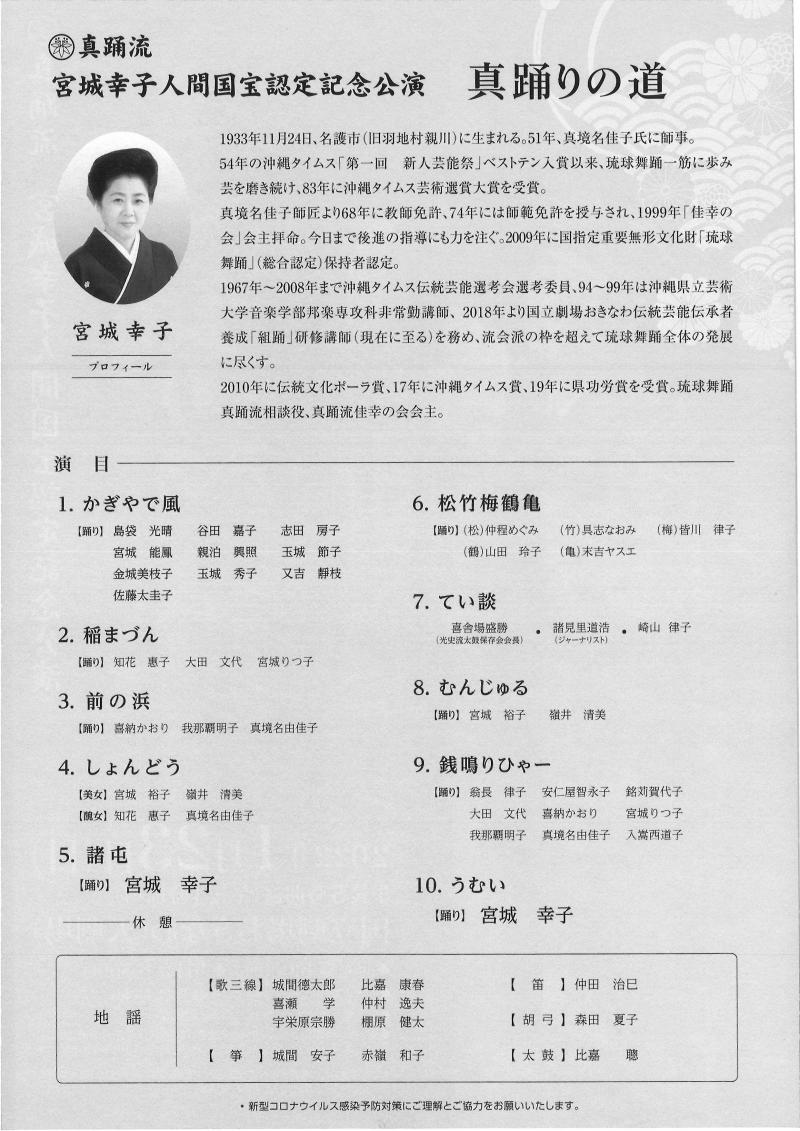 真踊流
宮城幸子人間国宝認定記念公演　真踊りの道
1933年11月24日、名護市（旧羽地村親川）に生まれる。51年、真境名佳子氏に師事。
54年の沖縄タイムス「第一回　新人芸能祭」ベストテン入賞以来、琉球舞踊一筋に歩み
芸を磨き続け、83年に沖縄タイムス芸術選賞大賞を受賞。
真境名佳子師匠より68年に教師免許、74年には師範免許を授与され、1999年「佳幸の
会」会主拝命。今日まで後進の指導にも力を注ぐ。2009年に国指定重要無形文化財「琉球
舞踊」（総合認定）保持者認定。
1967年～2008年まで沖縄タイムス伝統芸能選考会選考委員、94～99年は沖縄県立芸術
大学音楽学部邦楽専攻科非常勤講師、2018年より国立劇場おきなわ伝統芸能伝承者
養成「組踊」研修講師（現在に至る）を務め、流会派の枠を超えて琉球舞踊全体の発展
に尽くす。
2010年に伝統文化ポーラ賞、17年に沖縄タイムス賞、19年に県功労賞を受賞。琉球舞踊
真踊流相談役、真踊流佳幸の会会主。
宮城幸子
プロフィール
演　目
1. かぎやで風
【踊り】島袋　光晴　谷田　嘉子　志田　房子
宮城　能鳳　親泊　興照　玉城　節子
金城美枝子　玉城　秀子　又吉　靜枝
佐藤太圭子
2. 稲まづん
【踊り】知花　惠子　大田　文代　宮城りつ子
3. 前の浜
【踊り】喜納かおり　我那覇明子　真境名由佳子
4. しょんどう
【美女】宮城　裕子　嶺井　清美
【醜女】知花　惠子　真境名由佳子
5. 諸屯
【踊り】宮城　幸子
休　憩
6. 松竹梅鶴亀
【踊り】（松）仲程めぐみ　（竹）具志なおみ　（梅）皆川　律子
（鶴）山田　玲子　（亀）末吉ヤスエ
7. てい談
喜舎場盛勝　・　諸見里道浩　・　崎山　律子
（光史流太鼓保存会会長）　（ジャーナリスト）
8. むんじゅる
【踊り】宮城　裕子　嶺井　清美
9. 銭鳴りひゃー
【踊り】翁長　律子　安仁屋智永子　銘苅賀代子
大田　文代　喜納かおり　宮城りつ子
我那覇明子　真境名由佳子　入嵩西道子
10. うむい
【踊り】宮城　幸子
地　謡
【歌三線】城間德太郎　比嘉　康春
喜瀬　学　仲村　逸夫
宇栄原宗勝　棚原　健太
【　箏　】城間　安子　赤嶺　和子
【　笛　】仲田　治巳
【胡弓】森田　夏子
【太鼓】比嘉　聰
・新型コロナウイルス感染予防対策にご理解とご協力をお願いいたします。